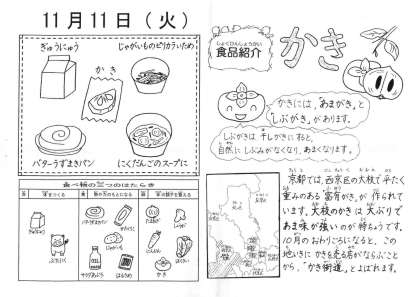 11月11日(火)
ぎゅうにゅう
じゃがいものピリカラいため
かき
バターうずまきパン
にくだんごのスープに
食べ物の三つのはたらき
ぎゅうにゅう
ぶたにく
バターうずまきパン
じゃがいも
サラダあぶら
はるさめ
にんじん
はくさい
かき
しょくひんしょうかい
食品紹介
かき
かきには、「あまがき」と
「しぶがき」があります。
しぶがきは干しがきにすると、
自然にしぶみがなくなり、あまくなります。
京都では、西京区の大枝で平たく
重みのある「富有がき」が作られて
います。大枝のかきは大ぶりで
あま味が強いのが特ちょうです。
10月のおわりごろになると、この
地いきにかきを売る店がならぶこと
から、「かき街道」とよばれます。